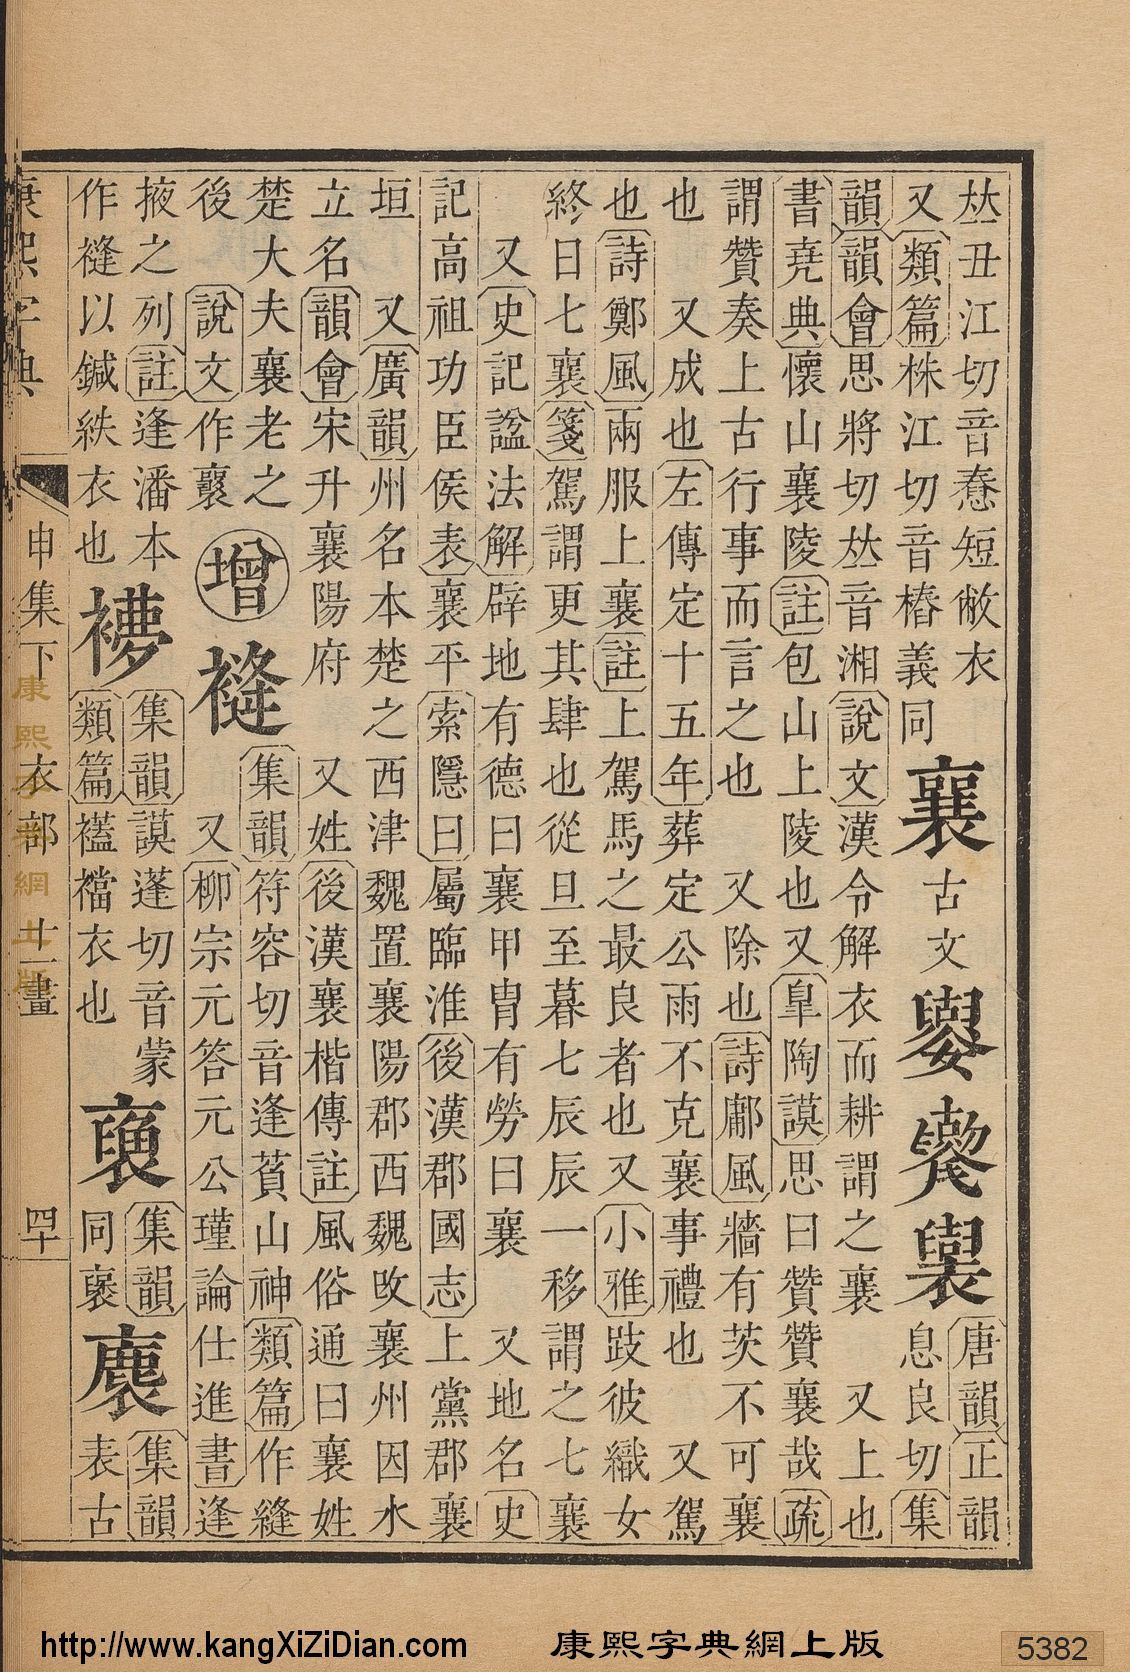 𠀤丑江切音惷短敝衣
又類篇株江切音樁義同
襄
古文
唐韻正韻
息良切集
韻韻會思將切𠀤音湘說文漢令解衣而耕謂之襄 又上也
書堯典懷山襄陵註包山上陵也又臯陶謨思曰贊贊襄哉疏
謂贊奏上古行事而言之也 又除也詩鄘風牆有茨不可襄
也 又成也左傳定十五年葬定公雨不克襄事禮也 又駕
也詩鄭風兩服上襄註上駕馬之最良者也又小雅跂彼織女
終日七襄箋駕謂更其肆也從旦至暮七辰辰一移謂之七襄
又史記諡法解辟地有德曰襄甲冑有勞曰襄 又地名史
記高祖功臣侯表襄平索隱曰屬臨淮後漢郡國志上黨郡襄
垣 又廣韻州名本楚之西津魏置襄陽郡西魏改襄州因水
立名韻會宋升襄陽府 又姓後漢襄楷傳註風俗通曰襄姓
楚大夫襄老之
後 說文作㐮
增
𧜁
集韻符容切音逢蕡山神類篇作縫
又柳宗元答元公瑾論仕進書逢
掖之列註逢潘本
作𧜁以鍼紩衣也
集韻謨蓬切音蒙
類篇襤襠衣也
集韻
同褎
集韻
表古
康熙字典
申集下 衣部 十一畫
四十
康熙字典網上版
http://www.kangXiZiDian.com
康熙字典網上版
5382